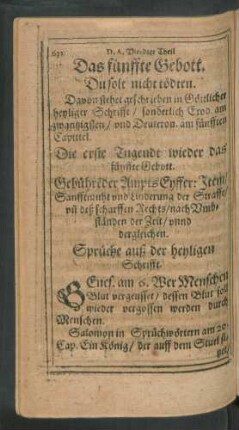 D. A. Vierdter Theil
Das fünffte Gebott.
Du solt nicht tödten.
Davon stehet geschrieben in Göttlicher
heyliger Schrifft / sonderlich Exod. am
zwantzigsten / und Deuteron. am fünfften
Capittel.
Die erste Tugendt wieder das
fünffte Gebott.
Gebührender Ampts Eyffer: Item /
Sanfftmuht und Linderung der Straffe /
uñ deß scharffen Rechts / nach Umb-
ständen der Zeit / unnd
dergleichen.
Sprüche auß der heyligen
Schrifft.
GEnes. am 6. Wer Menschen
Blut vergeusset / dessen Blut soll
wieder vergossen werden durch
Menschen.
Salomon in Sprüchwörtern am 20.
Cap. Ein König / der auff dem Stuel